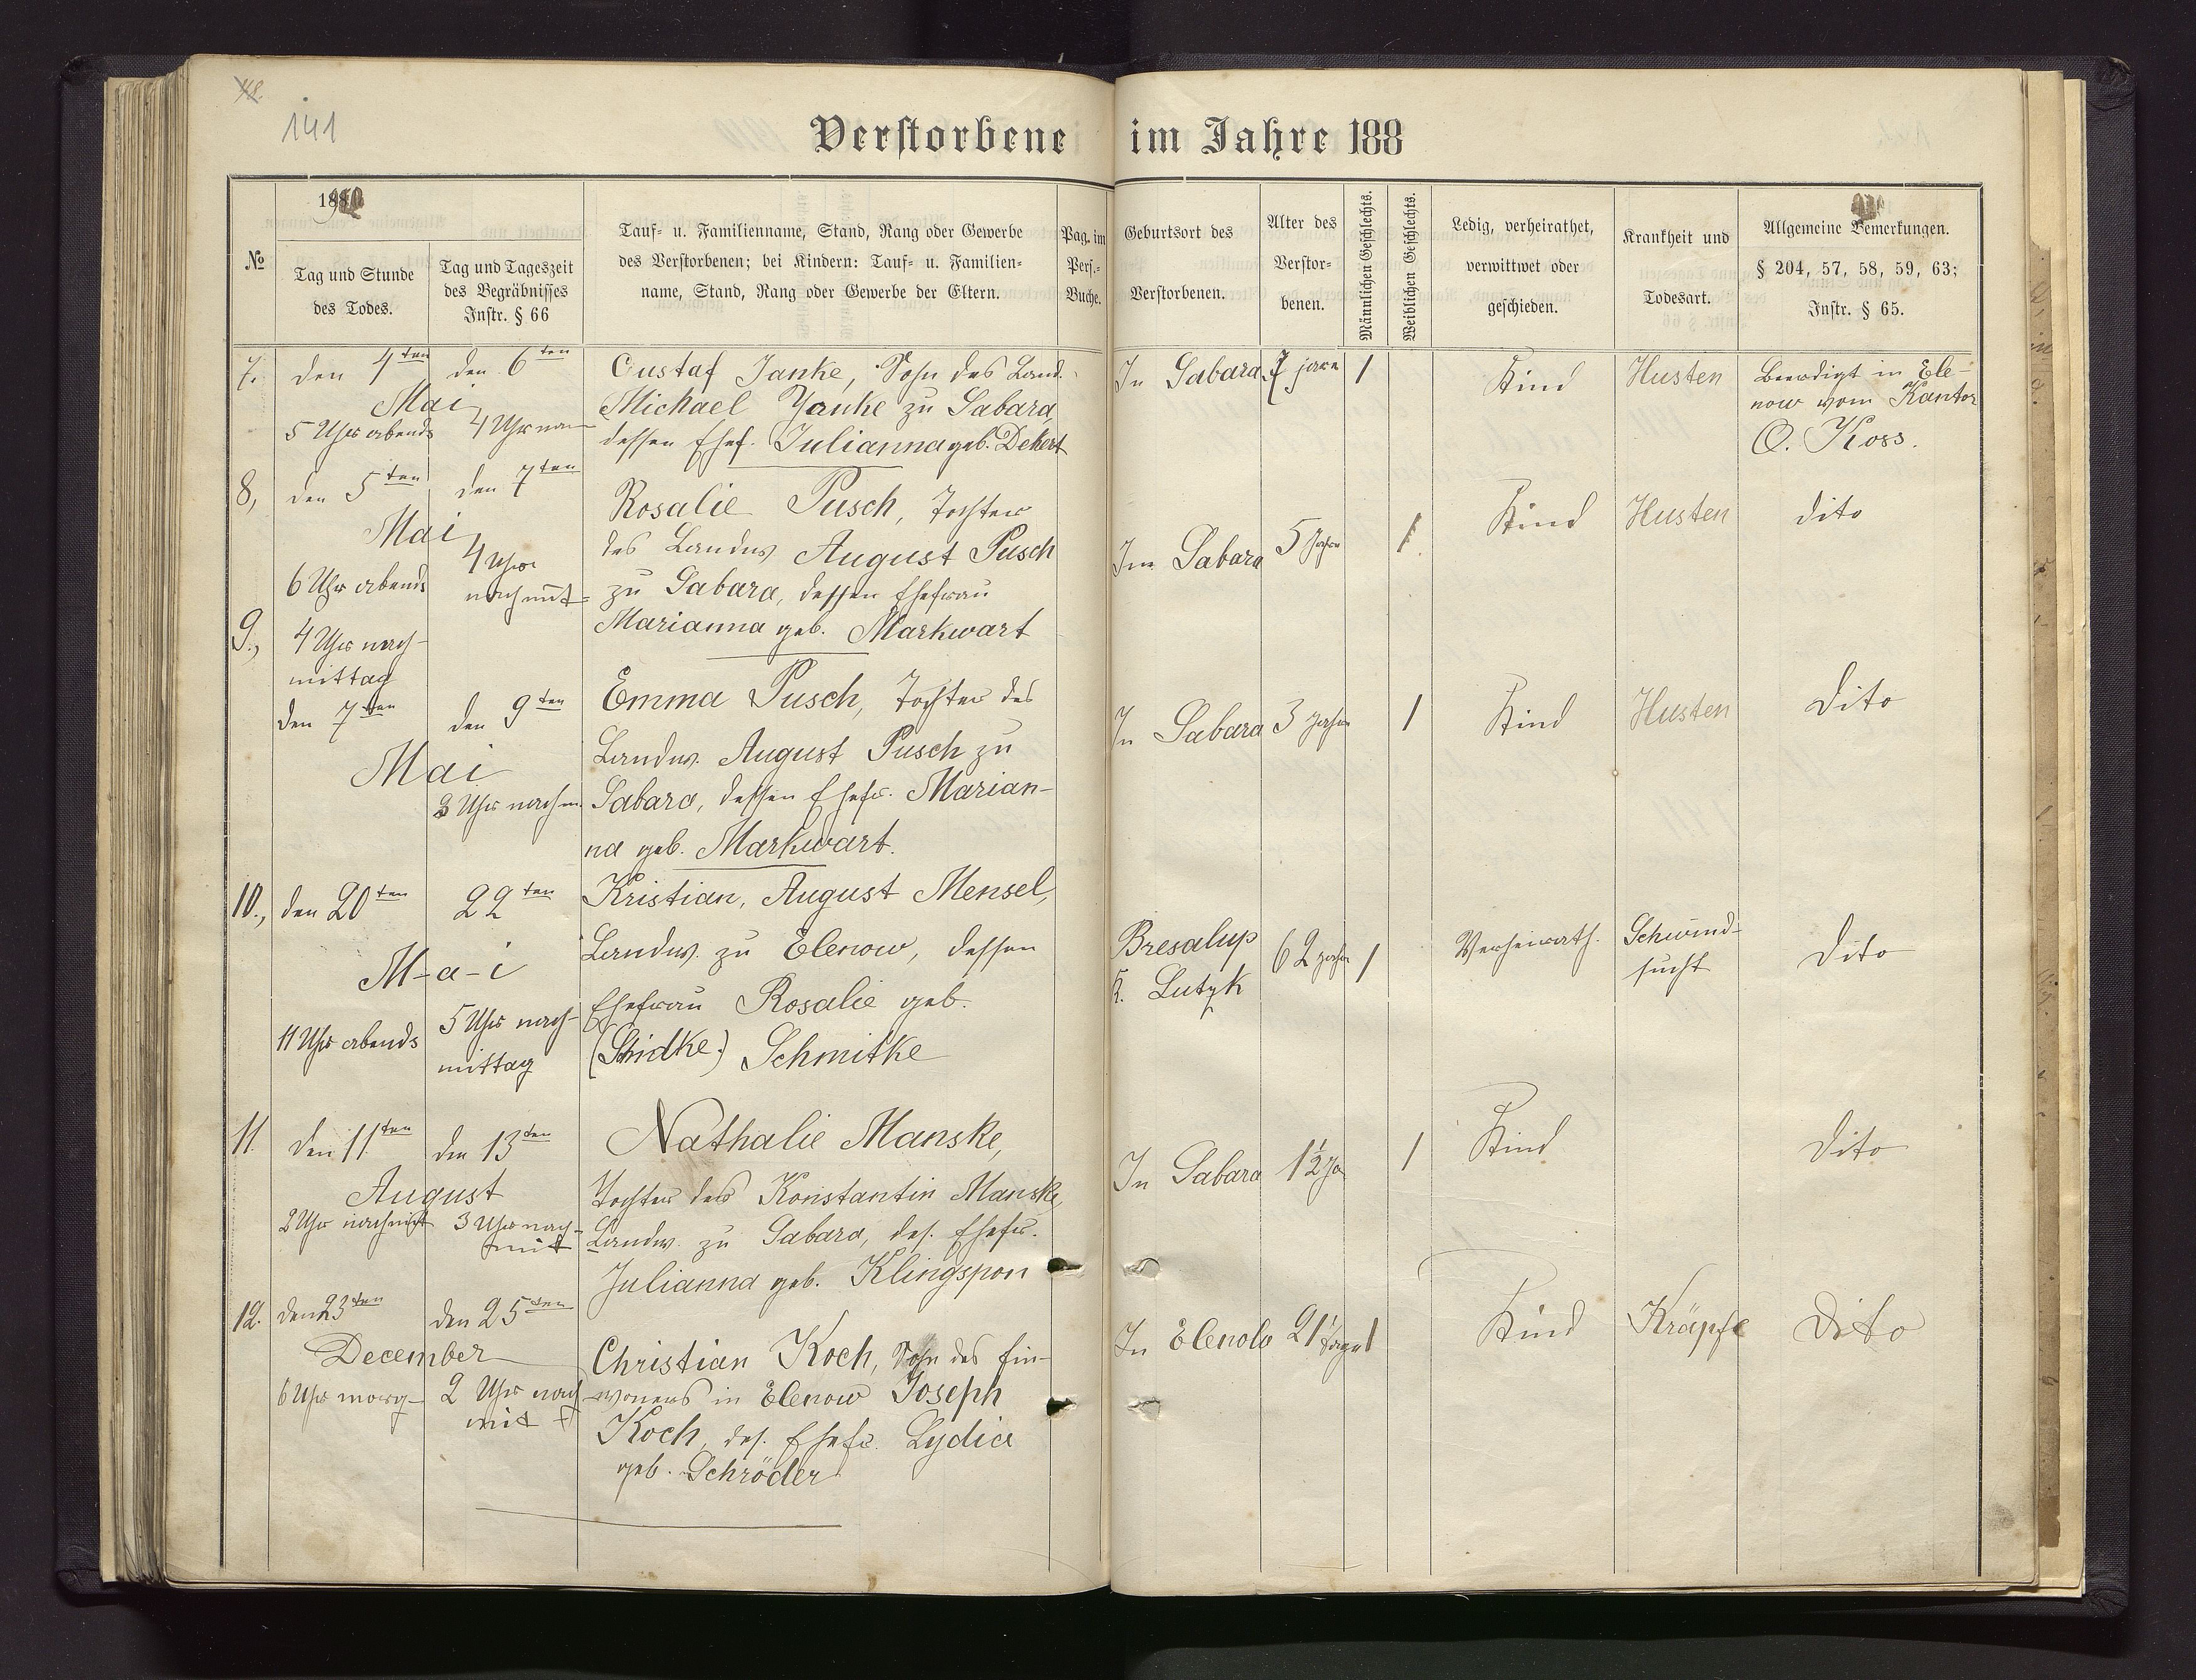 141
Verstorbene im Jahre 188
№
Tag und Stunde
des Todes.
Tag und Tageszeit
des Begräbnisses
Instr. § 66
Tauf- u. Familienname, Stand, Rang oder Gewerbe
des Verstorbenen; bei Kindern: Tauf- u. Familien-
name, Stand, Rang oder Gewerbe der Eltern.
Pag. im
Pers.-
Buche.
Geburtsort des
Verstorbenen.
Alter des
Verstor-
benen.
Männlichen Geschlechts.
Weiblichen Geschlechts.
Ledig, verheirathet,
verwittwet oder
geschieden.
Krankheit und
Todesart.
Allgemeine Bemerkungen.
§ 204, 57, 58, 59, 63;
Instr. § 65.
7.
den 4ten
Mai
5 Uhr abends
den 6ten
4 Uhr na-
Gustaf Janke, Sohn des Land.
Michael Yanke zu Sabara,
dessen Ehef. Julianna geb. Dekert
In Sabara
7 jare
1
Kind
Husten
Beerdigt in Ele-
now vom Kantor
O. Koss.
8,
den 5ten
Mai
6 Uhr abends
den 7ten
4 Uhr
nachmit-
Rosalie Pusch, Tochter
des Landw August Pusch
zu Sabara, dessen Ehefrau
Marianna geb. Markwart
In Sabara
5 Jahre
1.
Kind
Husten
dito
9.,
4 Uhr nach-
mittag
den 7ten
Mai
den 9ten
3 Uhr nachm.
Emma Pusch, Tochter des
Landw. August Pusch zu
Sabara, dessen Ehefr. Marian-
na geb. Markwart.
In Sabara
3 Jahre
1
Kind
Husten
Dito
10.,
den 20ten
M-a-i
11 Uhr abends
22ten
5 Uhr nach-
mittag
Kristian, August Mensel,
Landw. zu Elenow, dessen
Ehefrau Rosalie geb.
Schmitke
Bresalup
K. Lutzk
62 Jahre
1
Verheirath.
Schwind-
sucht
Dito
11.
den 11ten
August
2 Uhr nachmit
den 13ten
3 Uhr nach-
mit
Nathalie Manske,
Tochter des Konstantin Manske,
Landw. zu Sabara, des. Ehefr.
Julianna geb. Klingspon
In Sabara
1½ Ja
1
Kind
Dito
12.
den 23ten
December
6 Uhr morg-
den 25ten
2 Uhr nach
mit
Christian Koch, Sohn des Ein-
woners in Elenow Joseph
Koch, des. Ehefr. Lydia
geb. Schröder
In Elenow
21 Tage
1
Kind
Kräpfe
Dito